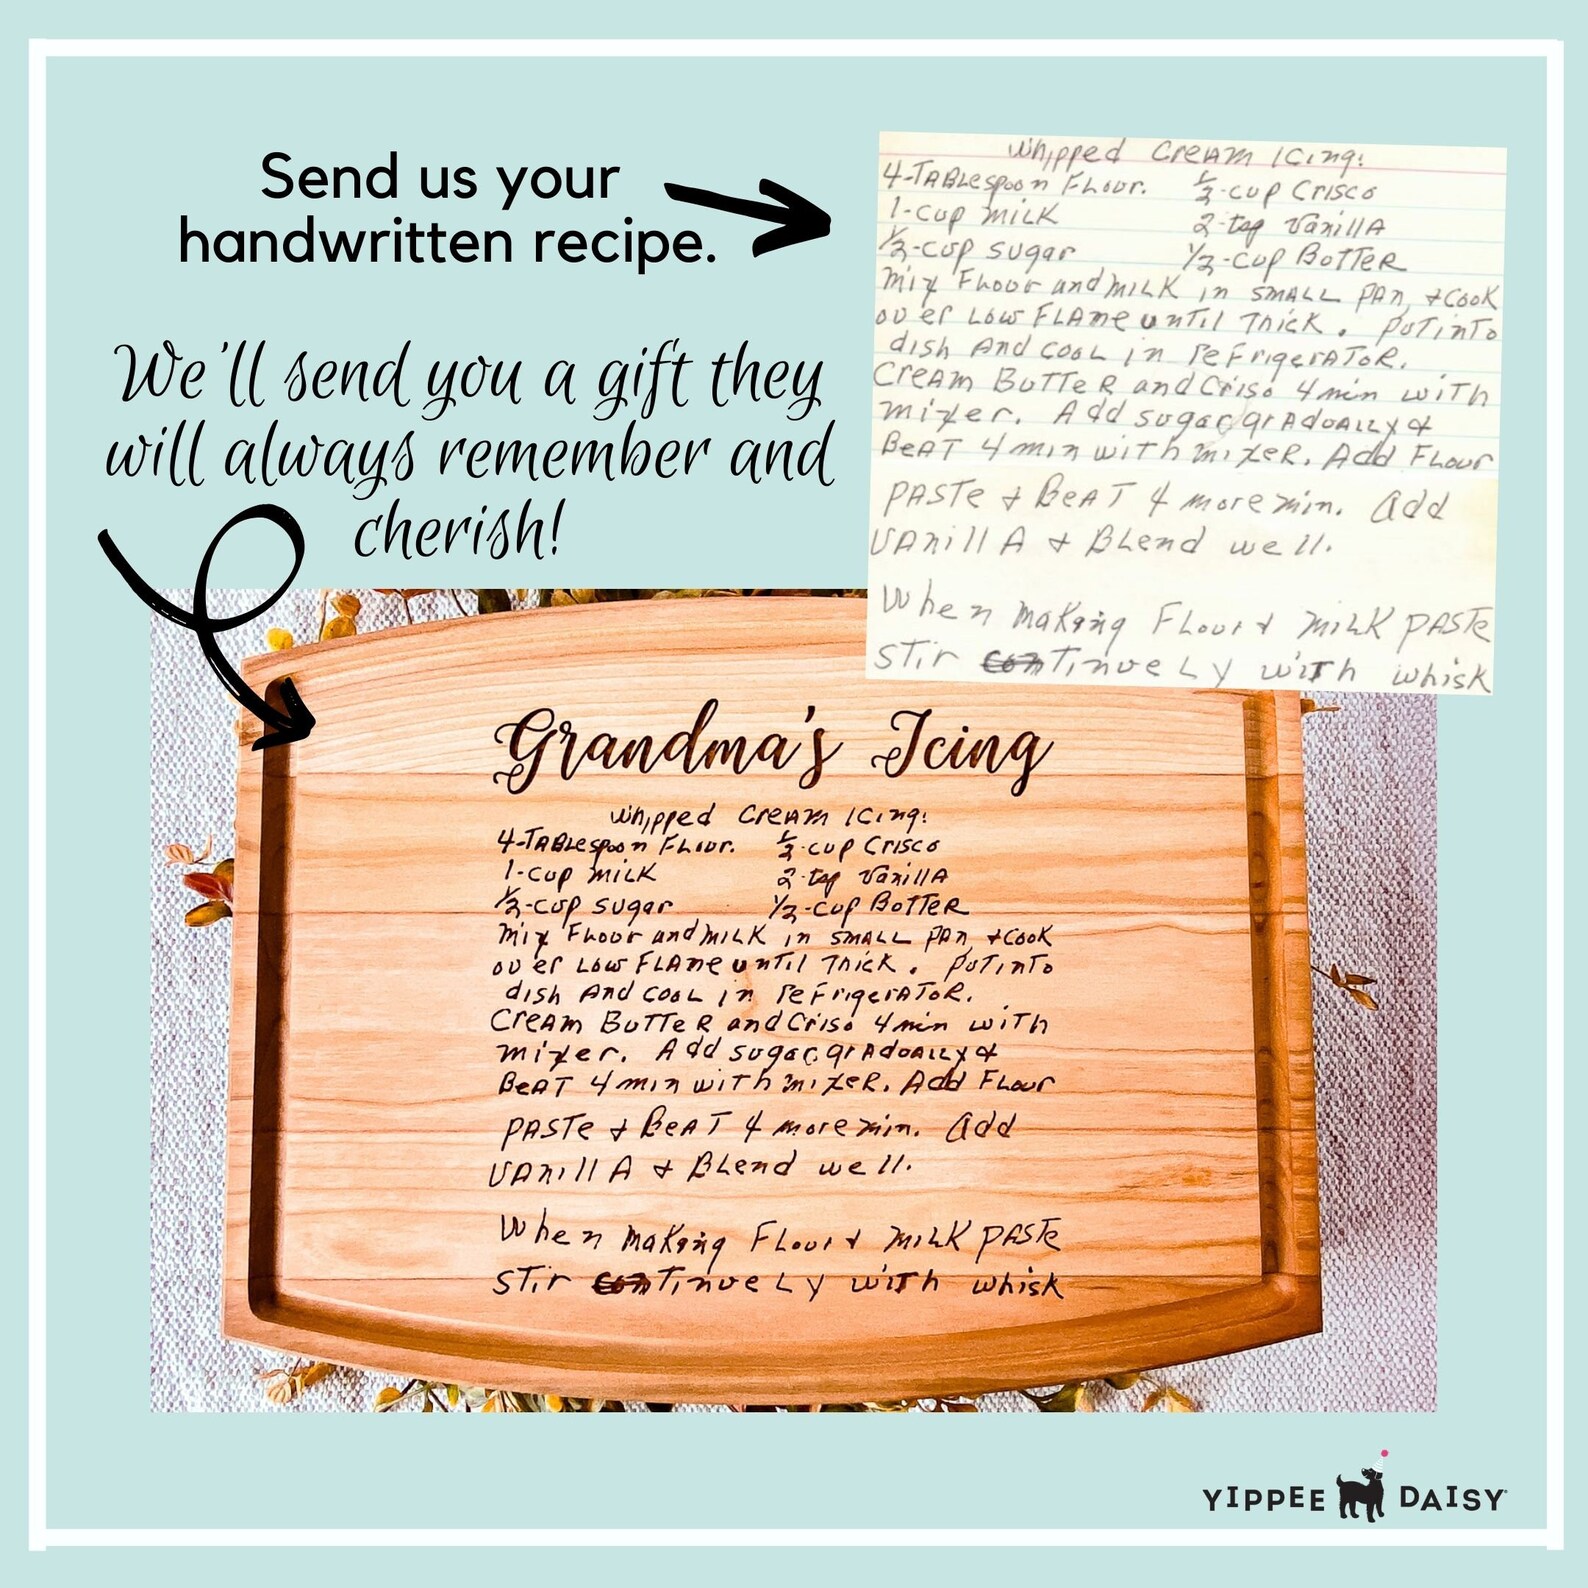 Send us your
handwritten recipe.
We'll send you a gift they
will always remember and
cherish!
Whipped Cream Icing:
4-TABLespoon FLour. ½-cup Crisco
1-cup MILK 2-tsp VanillA
½-cup sugar ½-cup BuTTeR
Mix FLour and MILK in SMALL PAn, + Cook
over Low FLAme unTil Thick. PuT inTo
dish And cooL in reFrigerATor.
CreAm BuTTeR and Criso 4 min wiTh
mixer. Add sugar grAduALLy +
BeAT 4 min wiTh mixeR. Add FLour
PASTe + BeAT 4 more min. Add
VAnillA + BLend well.
When Making FLour + MiLK PASTe
STir conTinueLy wiTh whisk
Grandma's Icing
Whipped CreAm Icing:
4-TABLespoon FLour. ½-cup Crisco
1-cup MILK 2-tsp VanillA
½-cup sugar ½-cup BuTTeR
Mix FLour and MILK in SMALL PAn, + Cook
over Low FLAme unTil Thick. PuT inTo
dish And cooL in reFrigerATor.
CreAm BuTTeR and Criso 4 min wiTh
mixer. Add sugar grAduALLy +
BeAT 4 min wiTh mixeR. Add FLour
PASTe + BeAT 4 more min. Add
VAnillA + BLend well.
When Making FLour + MiLK PASTe
STir conTinueLy wiTh whisk
YIPPEE DAISY